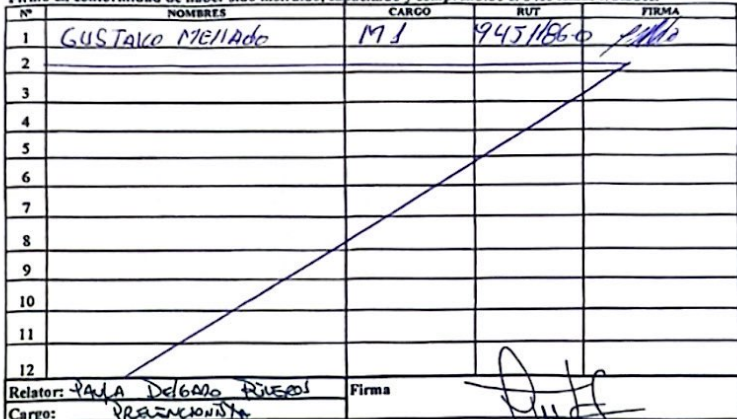 Nº NOMBRES CARGO RUT FIRMA
1 GUSTAVO MELLADO M1 9451186-0
2
3
4
5
6
7
8
9
10
11
12
Relator: PAULA DELGADO RIVEROS Firma
Cargo: PREVENCIONISTA